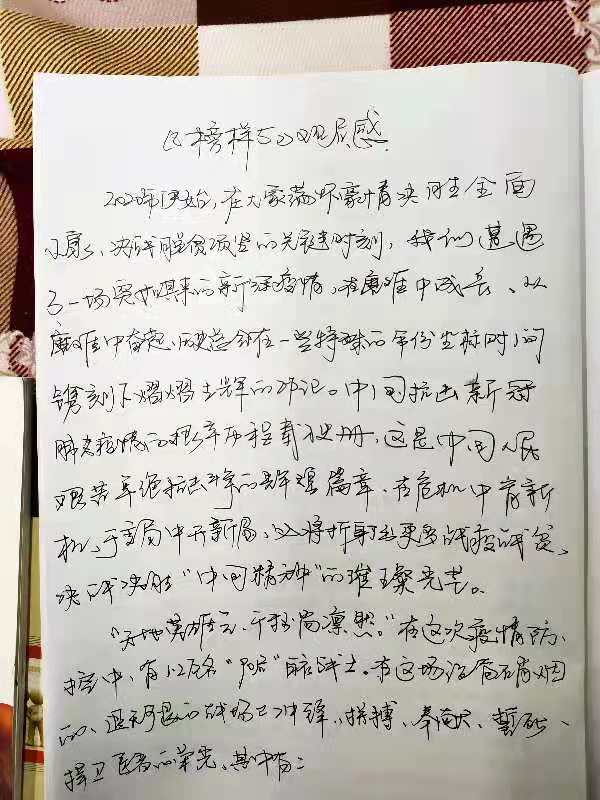 《榜样5》观后感
2020年伊始,在大家满怀豪情决胜全面
小康、决战脱贫攻坚的关键时刻,我们遭遇
了一场突如其来的新冠疫情,在磨难中成长、从
磨难中奋起,历史总会在一些特殊的年份坐标时间
镌刻下熠熠生辉的印记。中国抗击新冠
肺炎疫情的艰辛历程载入史册,这是中国人民
艰苦卓绝抗击斗争的篇章,在危机中育新
机、于变局中开新局,必将折射出更多战疫战贫、
决战决胜“中国精神”的璀璨光芒。
“天地英雄气,千秋尚凛然。”在这次疫情防
控中,有1.2万名“90后”战士。在这场没有硝烟
的、战场上冲锋、拼搏、奉献、誓死、
捍卫医者的荣光,其中有: